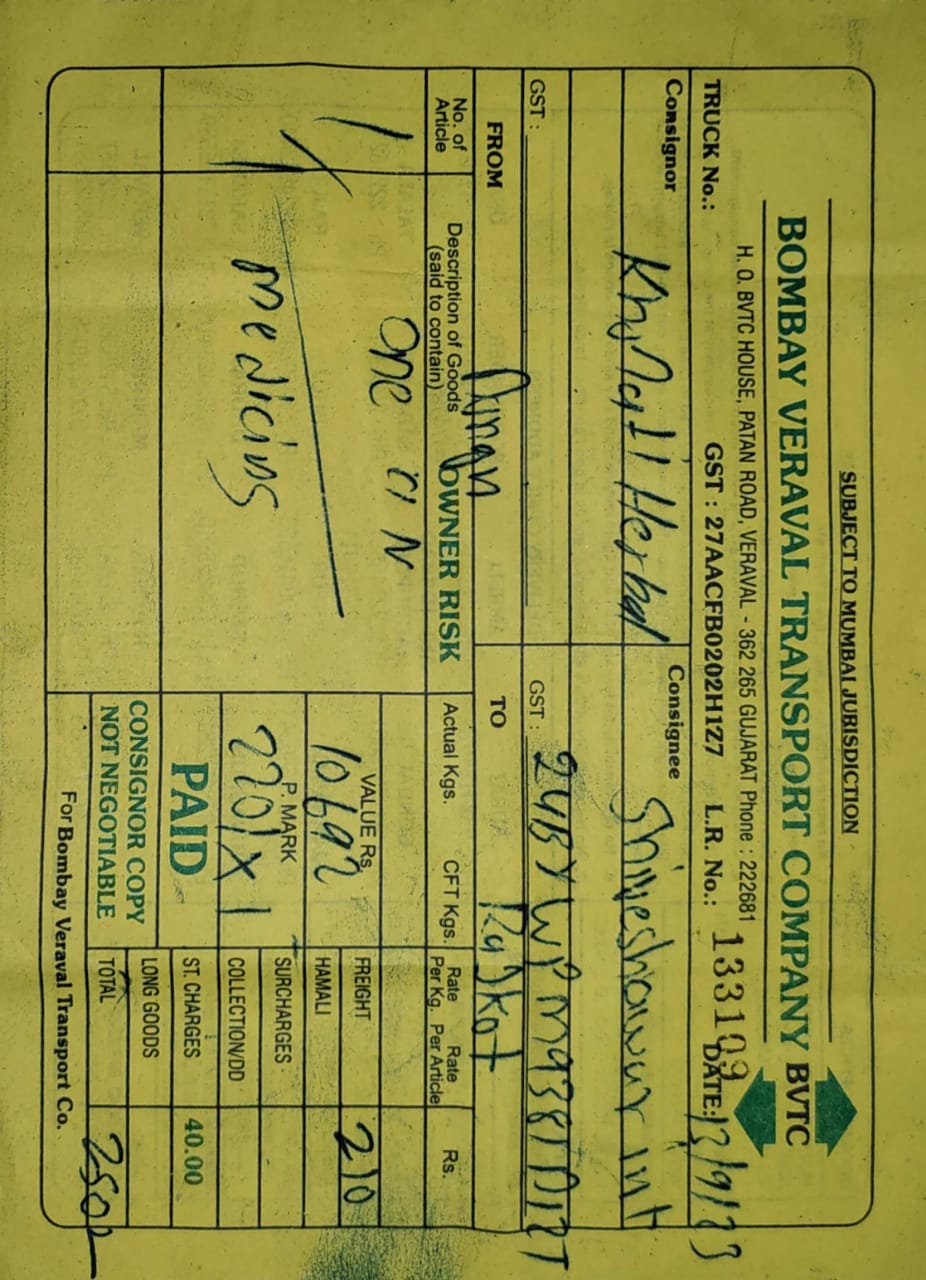 SUBJECT TO MUMBAI JURISDICTION
BOMBAY VERAVAL TRANSPORT COMPANY BVTC
H. O. BVTC HOUSE, PATAN ROAD, VERAVAL - 362 265 GUJARAT Phone : 222681
TRUCK No.: GST : 27AACFB0202H1Z7 L.R. No.: 133109 DATE:
Consignor Consignee
Herbal
GST : GST :
FROM TO Rajkot
No. of Article Description of Goods (said to contain) OWNER RISK Actual Kgs. CFT Kgs. Rate Per Kg. Rate Per Article Rs.
one
VALUE Rs. 10692 FREIGHT 210
HAMALI
P. MARK SURCHARGES
2201 X 1 COLLECTION/DD
PAID ST. CHARGES 40.00
CONSIGNOR COPY LONG GOODS
NOT NEGOTIABLE TOTAL 250
For Bombay Veraval Transport Co.